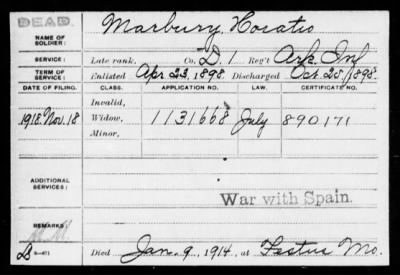 DEAD.
NAME OF SOLDIER: Marbury, Horatio
SERVICE: Late rank, Co. D. 1 Reg't Ark. Inf
TERM OF SERVICE: Enlisted Apr. 23, 1898. Discharged Oct. 25, 1898.
DATE OF FILING. CLASS. APPLICATION NO. LAW. CERTIFICATE NO.
Invalid,
1918. Nov. 18 Widow, 1131668 July 890171
Minor,
ADDITIONAL SERVICES:
War with Spain.
REMARKS:
Died Jan. 9, 1914, at Festus Mo.